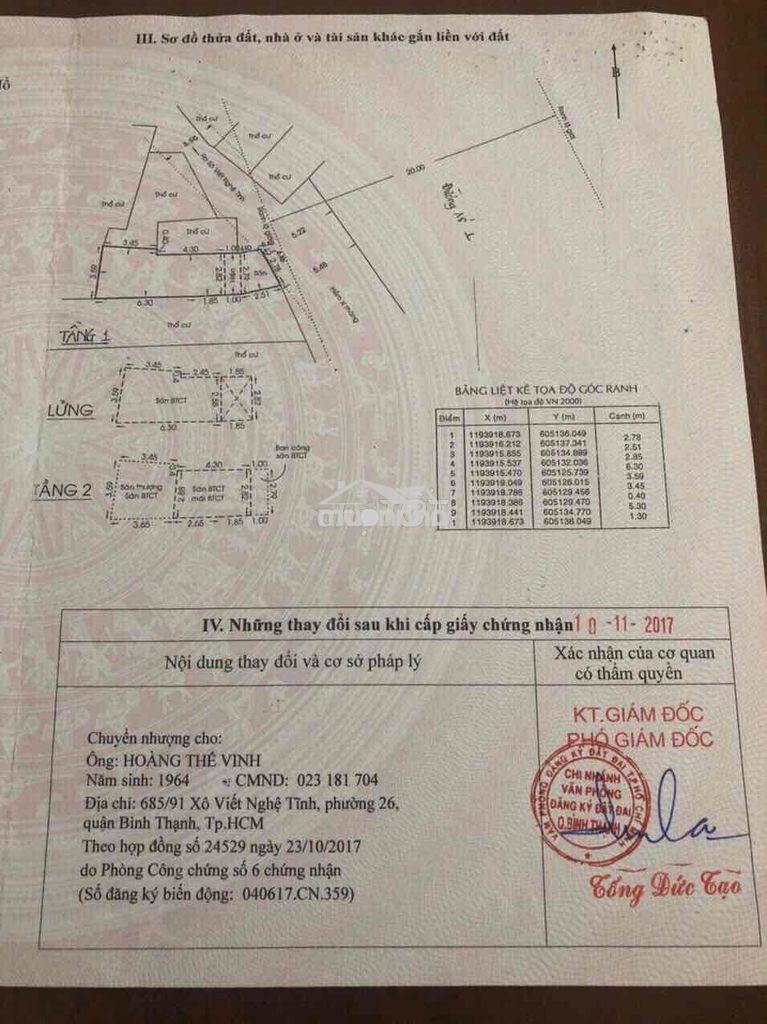 III. Sơ đồ thửa đất, nhà ở và tài sản khác gắn liền với đất
B
Thổ cư
Thổ cư
Thổ cư
Thổ cư
Thổ cư
Thổ cư
20.00
Đường XVNT
Hẻm xi măng
5.22
5.48
3.45
4.30
1.00
2.78
3.59
2.82
2.79
Hiên
Sân
6.30
1.85
1.00
2.51
TẦNG 1
Thổ cư
Thổ cư
LỬNG
3.45
2.45
1.85
3.59
Sàn BTCT
2.82
6.30
1.85
TẦNG 2
3.45
4.30
1.00
Ban công
sàn BTCT
3.59
Sân thượng
Sàn BTCT
Sàn BTCT
mái BTCT
2.82
2.79
3.65
2.65
1.85
1.00
BẢNG LIỆT KÊ TỌA ĐỘ GÓC RANH
(Hệ tọa độ VN 2000)
Điểm X (m) Y (m) Cạnh (m)
1 1193918.673 605136.049
2.78
2 1193916.212 605137.341
2.51
3 1193915.855 605134.889
2.85
4 1193915.537 605132.036
6.30
5 1193915.470 605125.739
3.59
6 1193919.049 605126.015
3.45
7 1193918.786 605129.456
0.40
8 1193918.386 605129.470
5.30
9 1193918.441 605134.770
1.30
1 1193918.673 605136.049
muonnha
IV. Những thay đổi sau khi cấp giấy chứng nhận 10 -11- 2017
Nội dung thay đổi và cơ sở pháp lý
Xác nhận của cơ quan
có thẩm quyền
Chuyển nhượng cho:
Ông: HOÀNG THẾ VINH
Năm sinh: 1964 - CMND: 023 181 704
Địa chỉ: 685/91 Xô Viết Nghệ Tĩnh, phường 26,
quận Bình Thạnh, Tp.HCM
Theo hợp đồng số 24529 ngày 23/10/2017
do Phòng Công chứng số 6 chứng nhận
(Số đăng ký biến động: 040617.CN.359)
KT.GIÁM ĐỐC
PHÓ GIÁM ĐỐC
VĂN PHÒNG ĐĂNG KÝ ĐẤT ĐAI T.PHỐ CHÍ MINH
CHI NHÁNH
VĂN PHÒNG
ĐĂNG KÝ ĐẤT ĐAI
Q.BÌNH THẠNH
Tống Đức Tạo